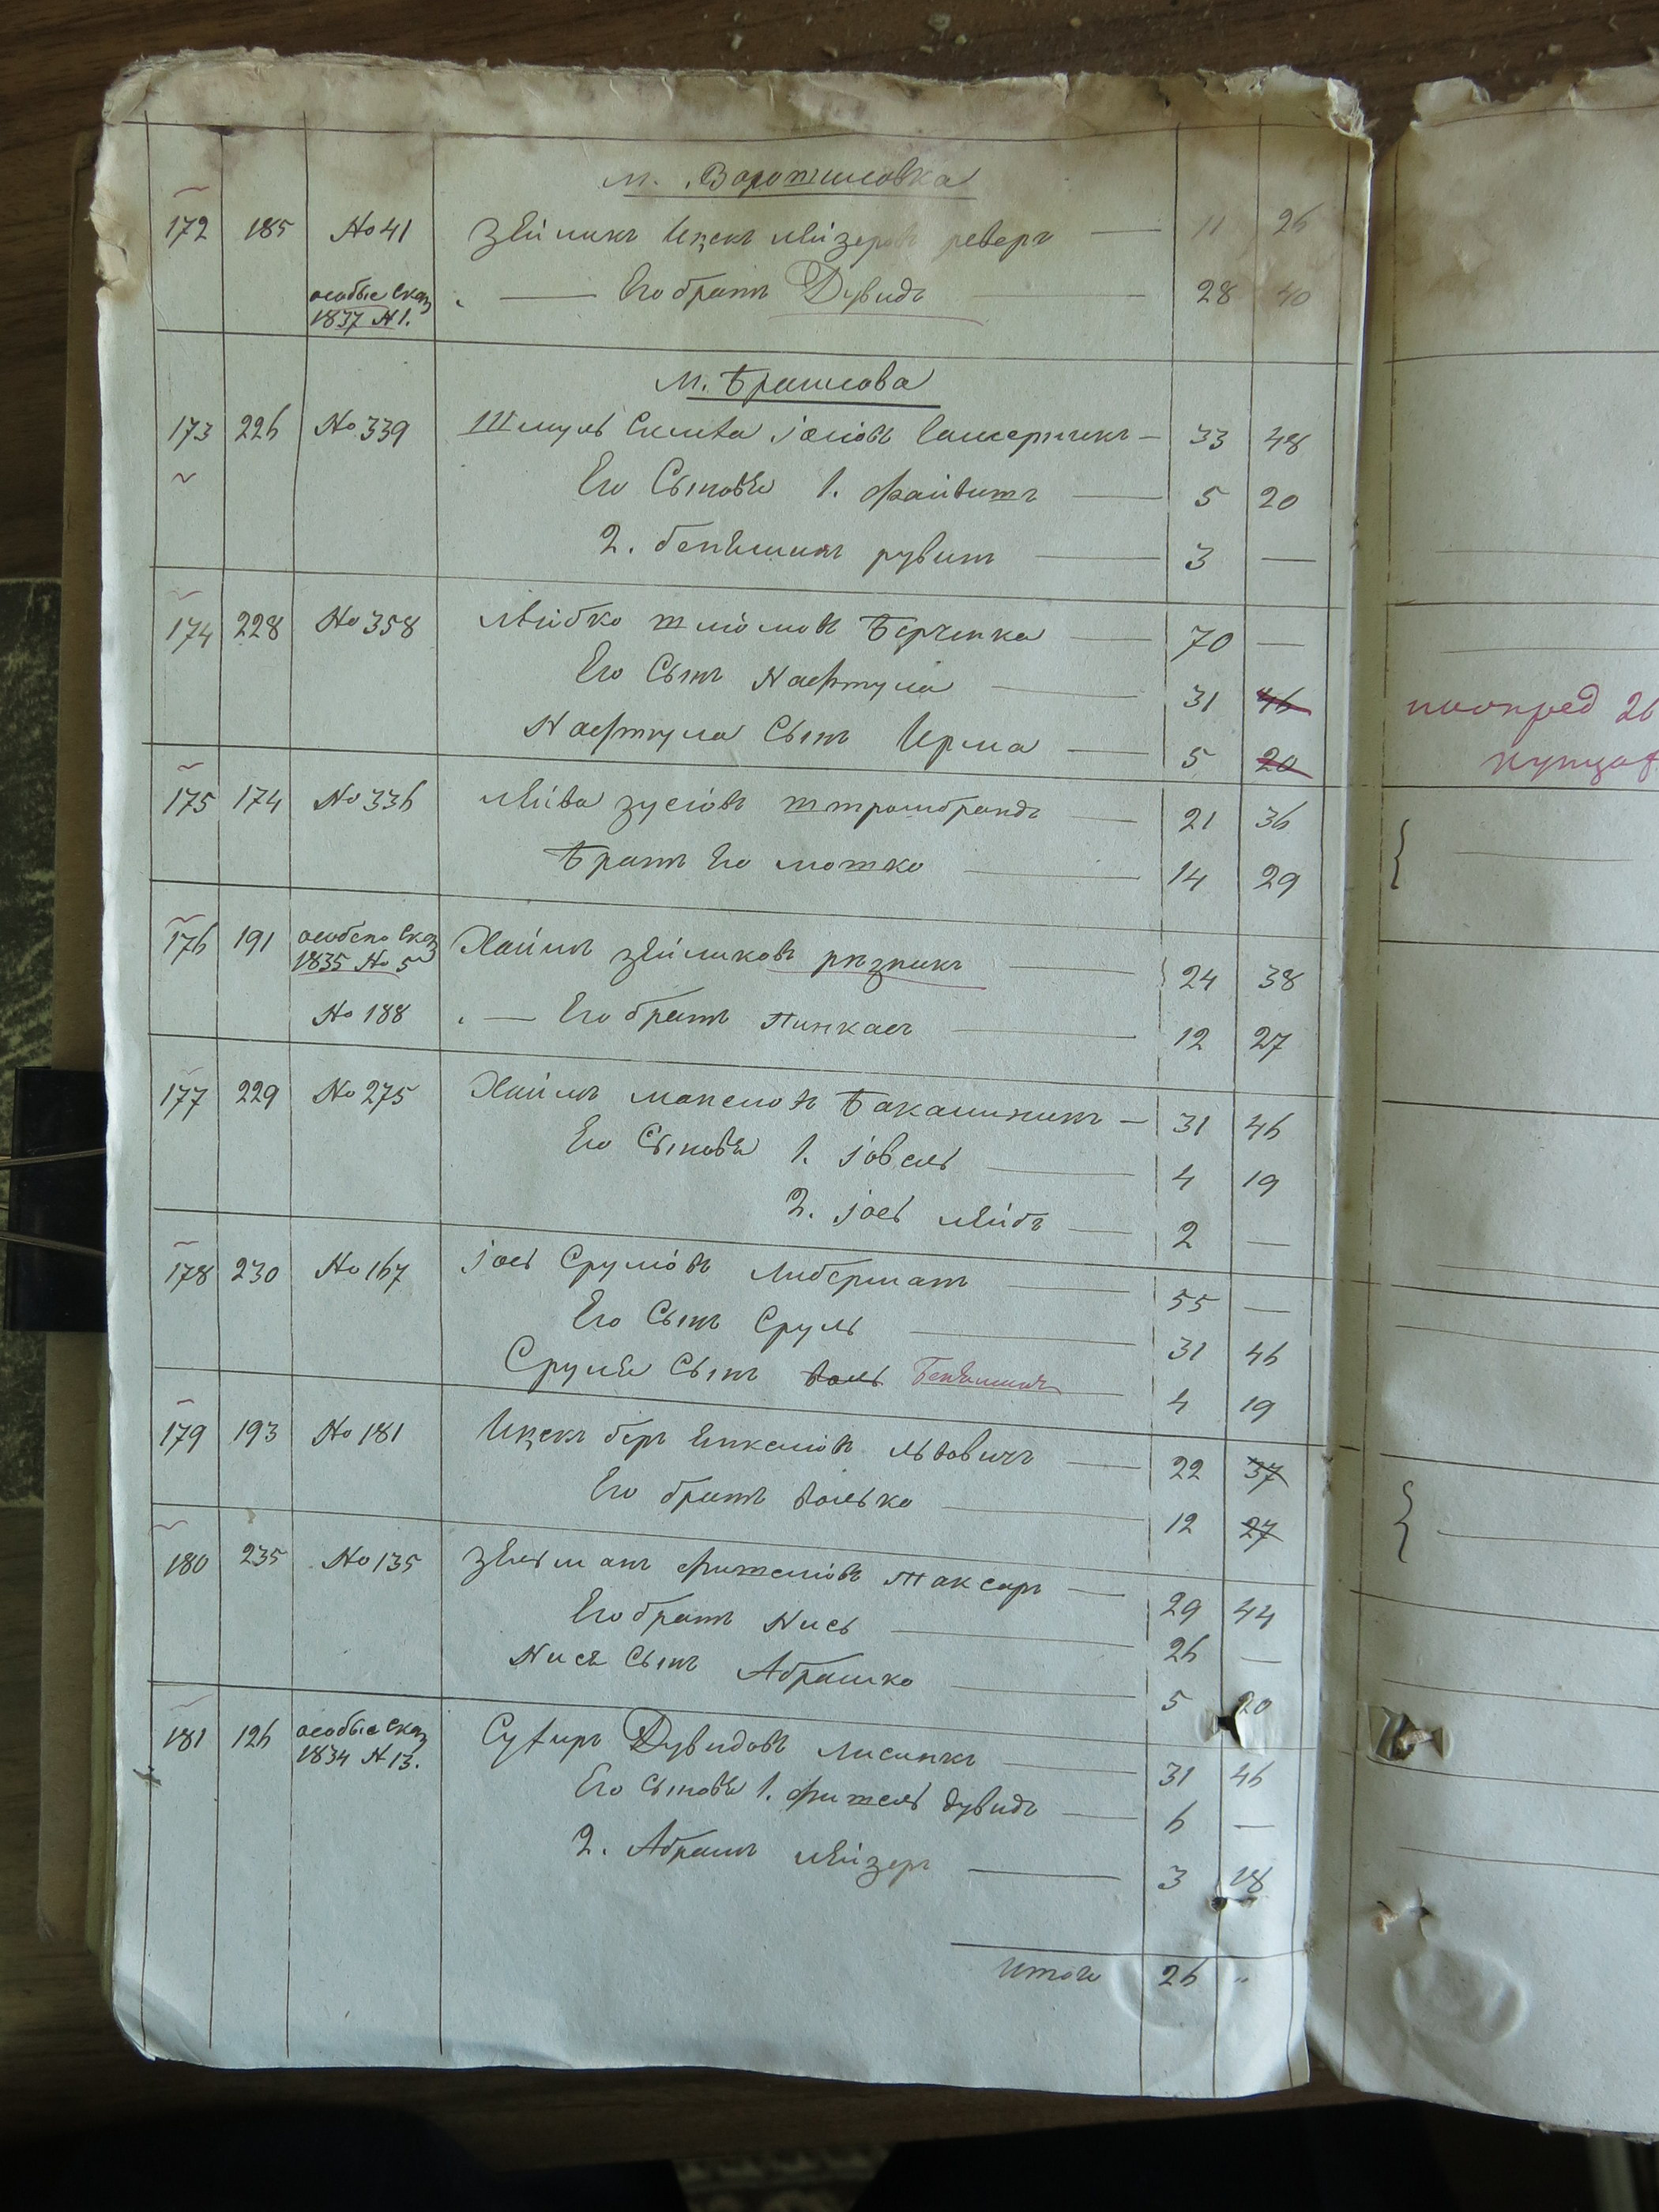 м. Ворошиловка
172 185 №41 Зейликъ Ицекъ Лейзеровъ реверъ — 11 26
особые Сказ 1837 №1. — Его братъ Дувидъ — 28 40
м. Браилова
173 226 №339 Шмуль Сехаріовъ — 33 48
Его Сыновья 1. Файвишъ — 5 20
2. беніяминъ рувинъ — 3 —
174 228 №358 Лейбко шліомовъ Берченка — 70 —
Его Сынъ Нафтула — 31 46
Нафтула Сынъ Ирма — 5 20
175 174 №336 Лейба зусіовъ штромбрандъ — 21 36
Братъ Его мошко — 14 29
176 191 особено Сказ 1835 №5 Хаимъ зейликовъ рѣзникъ — 24 38
№188 — Его братъ Пинкасъ — 12 27
177 229 №275 Хаимъ Бакалиникъ — 31 46
Его Сыновья 1. іовель — 4 19
2. іось лейбъ — 2 —
178 230 №167 іось Сруліовъ Либерманъ — 55 —
Его Сынъ Сруль — 31 46
Сруля Сынъ воль Беніяминъ — 4 19
179 193 №181 Ицекъ беръ Янкеліовъ львовичъ — 22 37
Его братъ волько — 12 27
180 235 №135 Зельманъ Фишеліовъ Таксаръ — 29 44
Его братъ Нись — 26 —
Нися Сынъ Абрашко — 5 20
181 126 особые Сказ 1834 №13. Суфиръ Дувидовъ — 31 46
Его Сыновья 1. Фишель Дувидъ — 6 —
2. Абрамъ Лейзеръ — 3 18
Итого 26 "
купцов